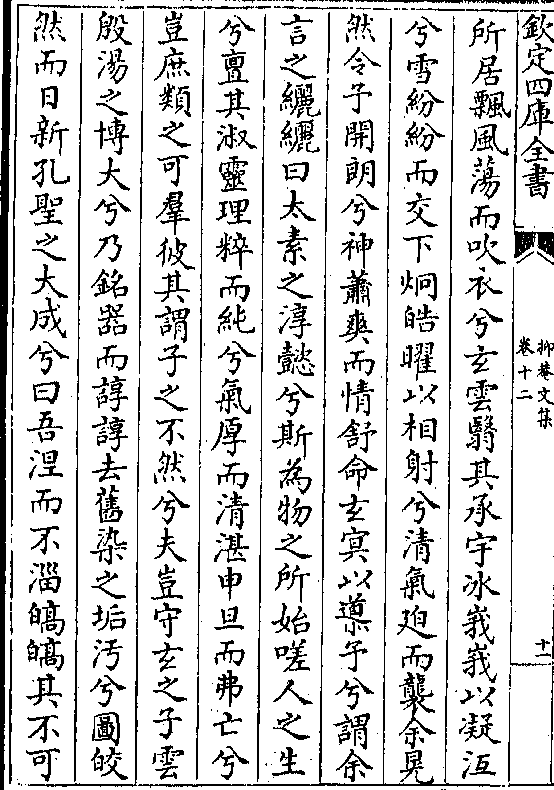 欽定四庫全書
抑菴文集
卷十二
十一
所居飄風蕩而吹衣兮玄雲翳其承宇冰峩峩以凝沍
兮雪紛紛而交下炯皓曜以相射兮清氣廹而襲余晃
然令予開朗兮神蕭爽而情舒命玄㝠以導予兮謂余
言之纚纚曰太素之淳懿兮斯為物之所始嗟人之生
兮亶其淑靈理粹而純兮氣厚而清湛申旦而弗亡兮
豈庶類之可羣彼其謂子之不然兮夫豈守玄之子雲
殷湯之博大兮乃銘器而諄諄去舊染之垢汚兮圖皎
然而日新孔聖之大成兮曰吾涅而不淄皜皜其不可